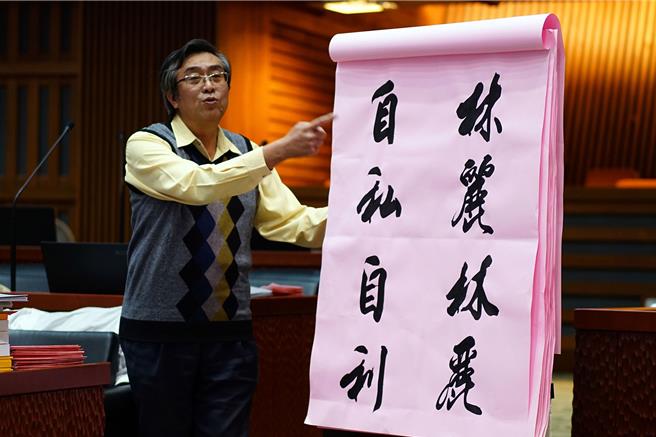 林麗林麗
自私自利